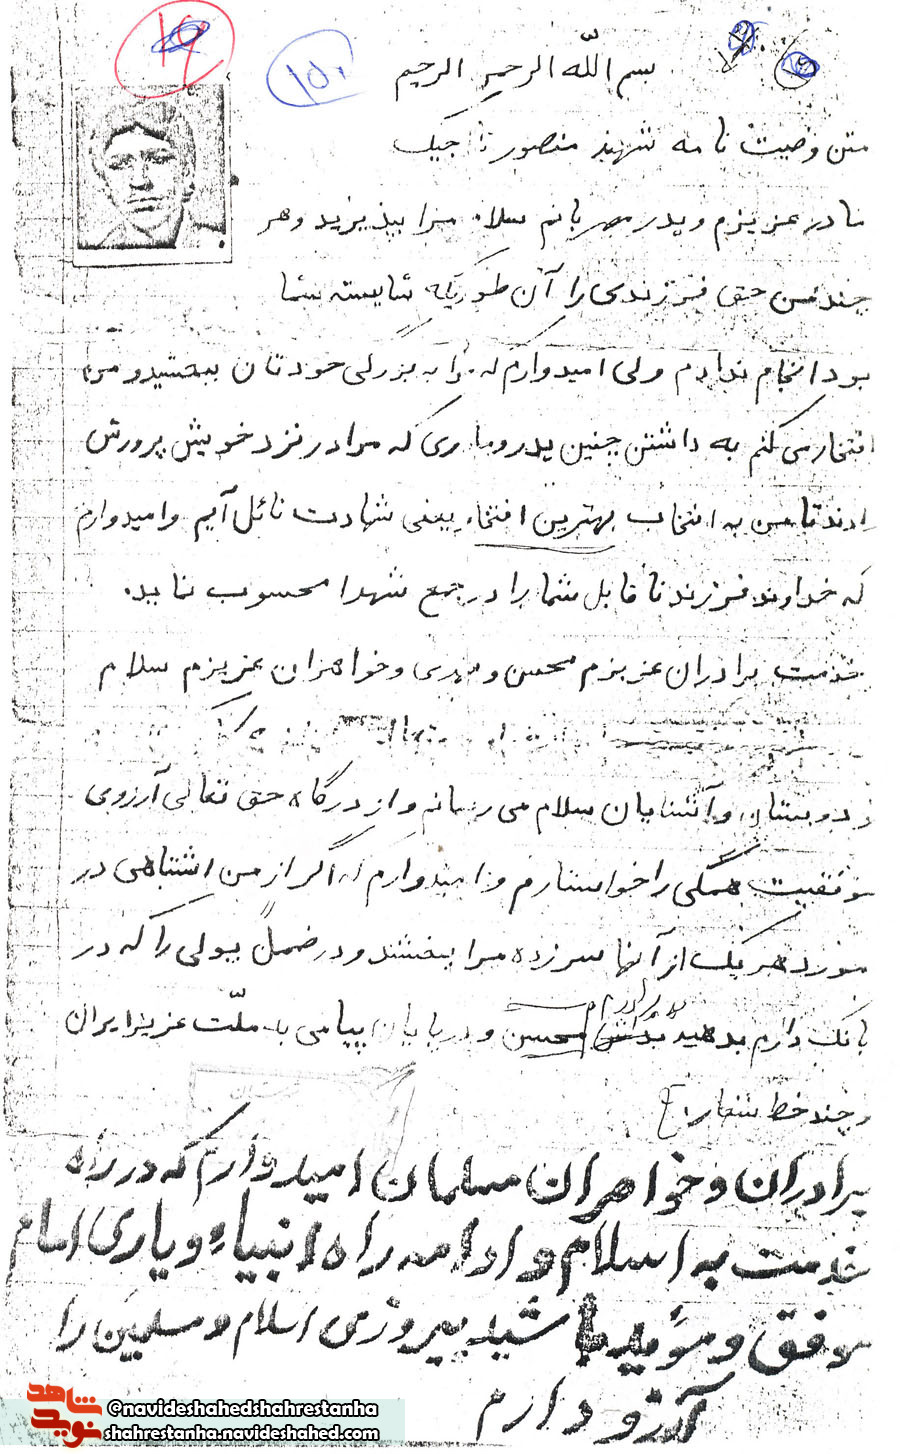 ۱۵۰
بسم الله الرحمن الرحیم
متن وصیت نامه شهید منصور تاجیک
مادر عزیزم و پدر مهربانم سلام مرا بپذیرید و هر
چند من حق فرزندی را آن طوریکه شایسته شما
بود انجام ندادم ولی امیدوارم که مرا به بزرگی خودتان ببخشید و من
افتخار می کنم به داشتن چنین پدر و مادری که مرا در نزد خویش پرورش
دادند تا من به انتخاب بهترین افتخار یعنی شهادت نائل آیم و امیدوارم
که خداوند فرزند ناقابل شما را در جمع شهدا محسوب نماید.
خدمت برادران عزیزم محسن و مهدی و خواهران عزیزم سلام
دوستان و آشنایان سلام می رسانم و از درگاه حق تعالی آرزوی
موفقیت همگی را خواستارم و امیدوارم که اگر از من اشتباهی در
مورد هر یک از آنها سر زده مرا ببخشند و در ضمن پولی را که در
بانک دارم بدهید به برادرم محسن و در پایان پیامی به ملّت عزیز ایران
و چند خط شعار
برادران و خواهران مسلمان امیدوارم که در راه
خدمت به اسلام و ادامه راه انبیاء و یاری امام
موفق و مؤید باشید پیروزی اسلام و مسلمین را
آرزو دارم
نوید شاهد
@navideshahedshahrestanha
shahrestanha.navideshahed.com